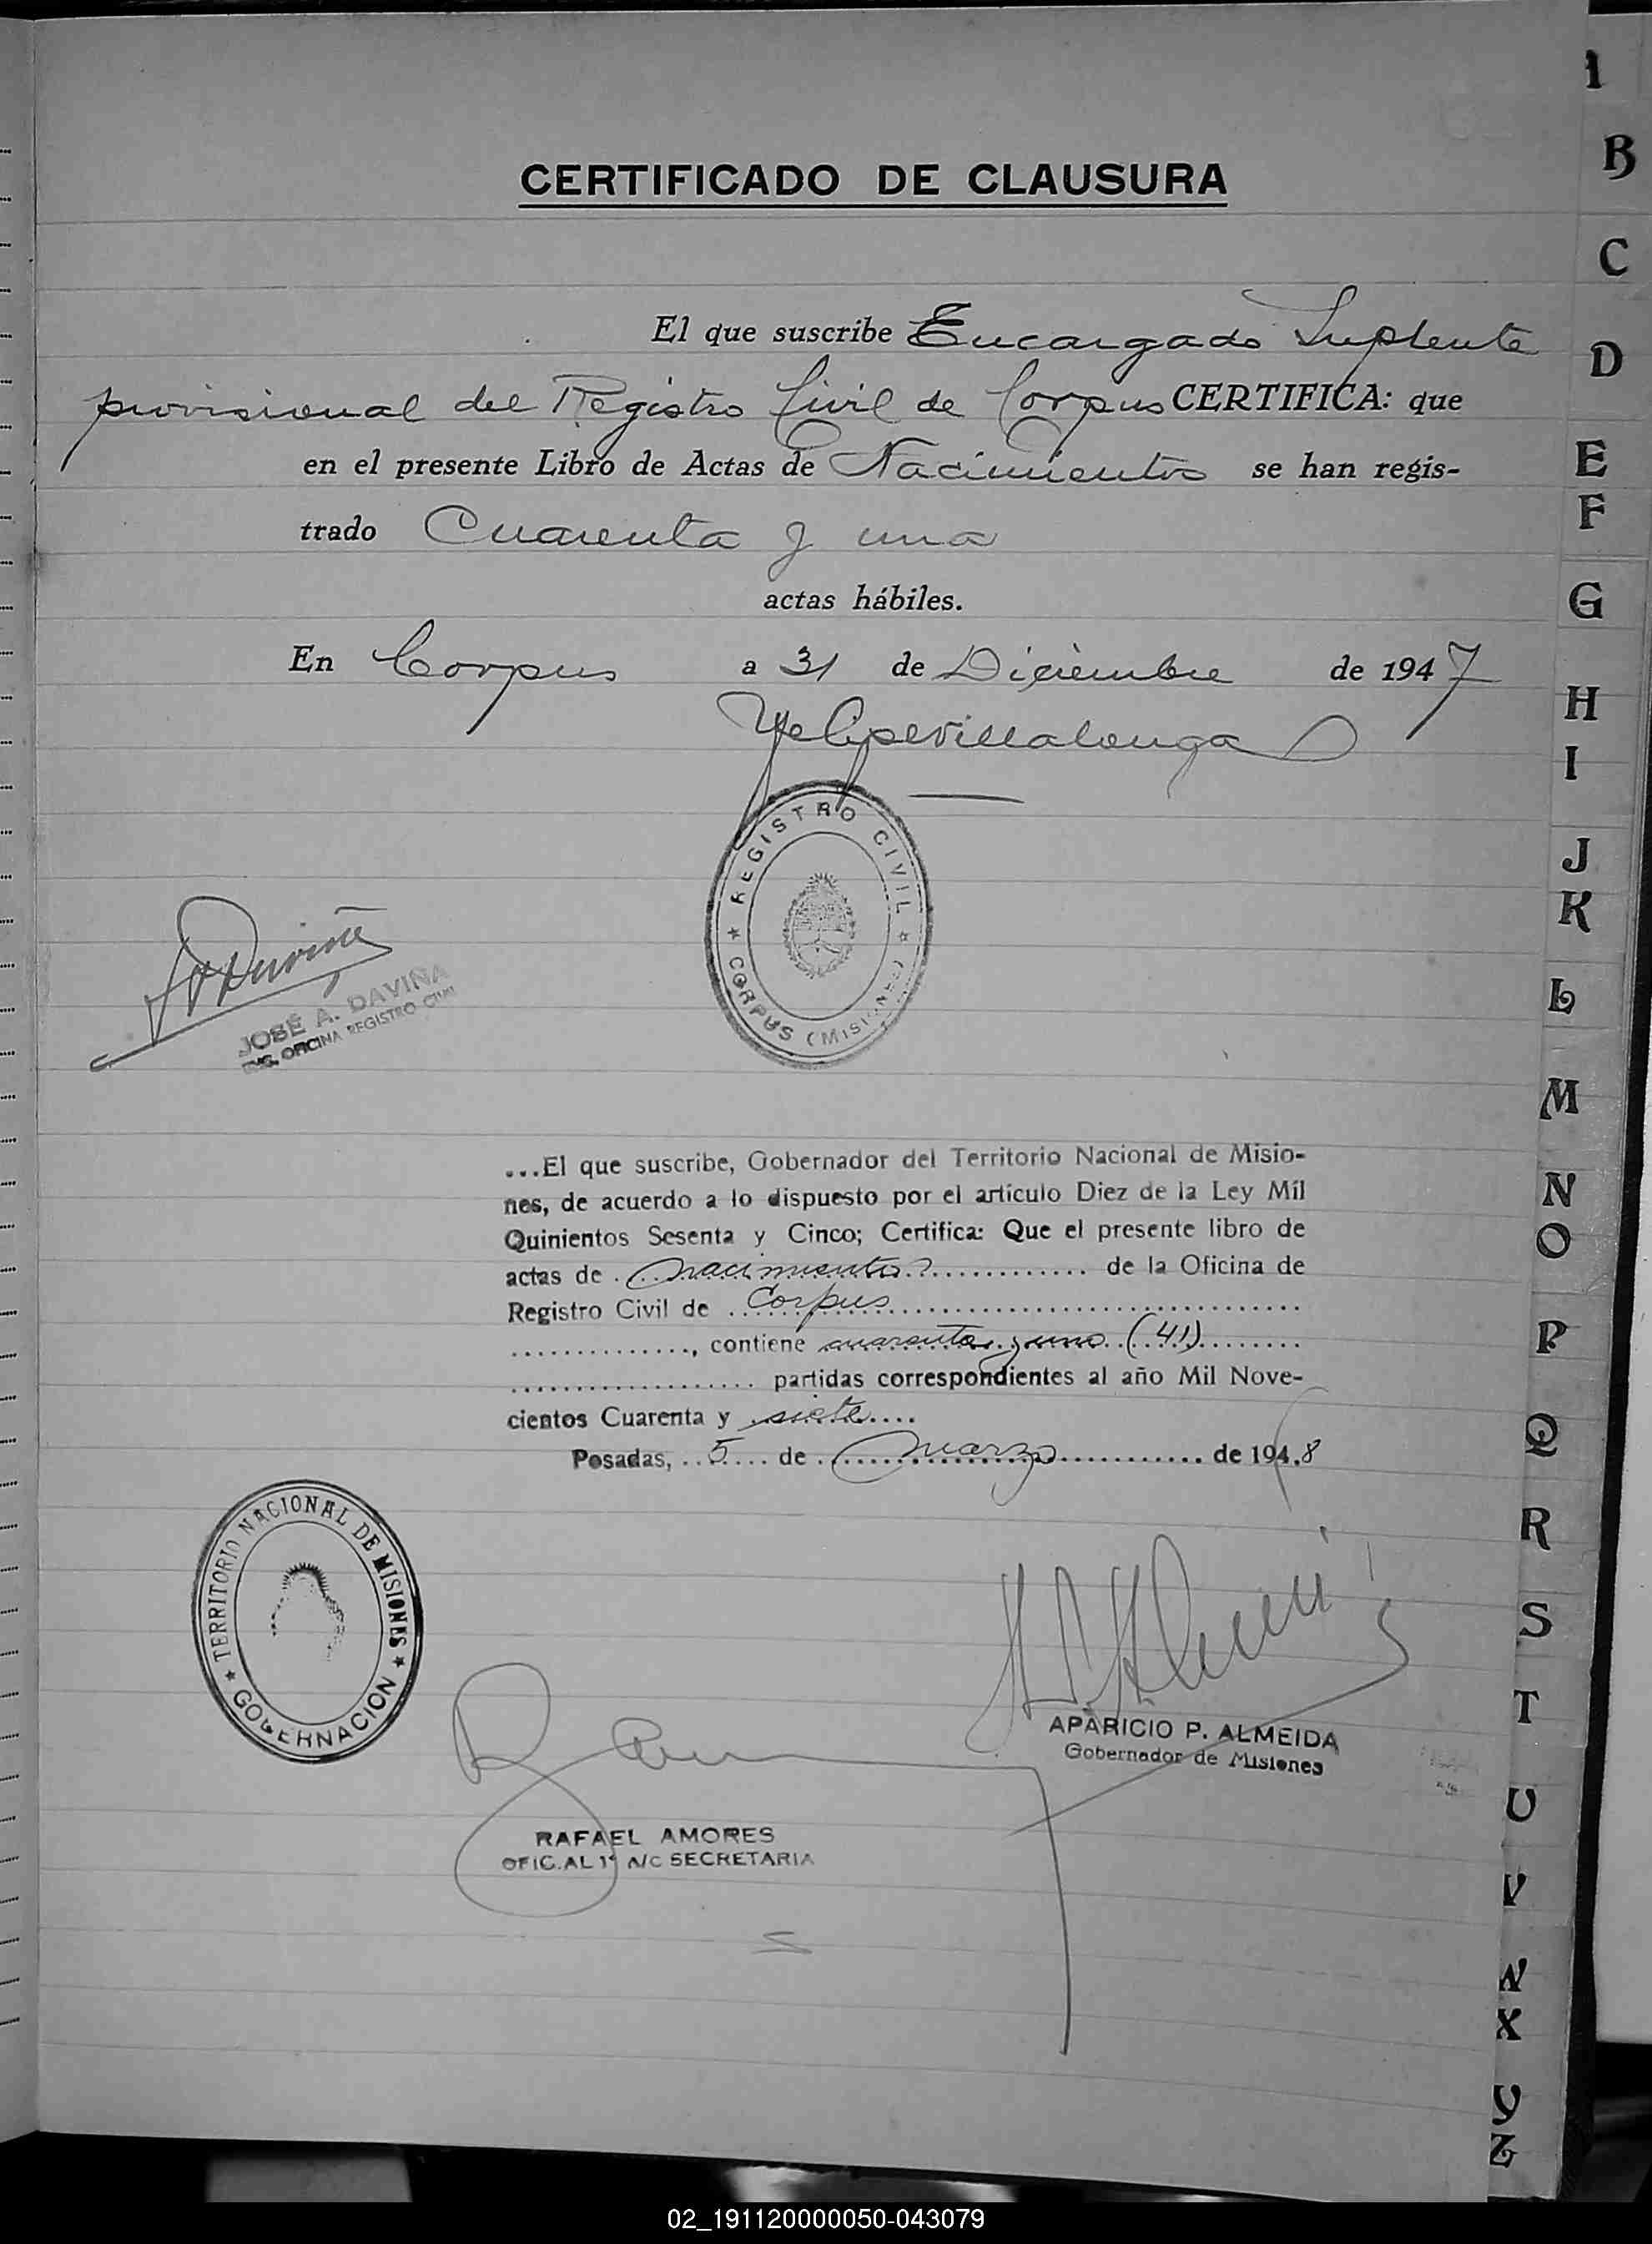 CERTIFICADO DE CLAUSURA
El que suscribe Encargado Suplente
provisional del Registro Civil de Corpus CERTIFICA: que
en el presente Libro de Actas de Nacimientos se han regis-
trado Cuarenta y una
actas hábiles.
En Corpus a 31 de Diciembre de 1947
REGISTRO CIVIL
CORPUS (MISIONES)
JOSÉ A. DAVIÑA
ENC. OFICINA REGISTRO CIVIL
...El que suscribe, Gobernador del Territorio Nacional de Misio-
nes, de acuerdo a lo dispuesto por el artículo Diez de la Ley Mil
Quinientos Sesenta y Cinco; Certifica: Que el presente libro de
actas de nacimientos de la Oficina de
Registro Civil de Corpus
, contiene cuarenta y uno (41)
partidas correspondientes al año Mil Nove-
cientos Cuarenta y siete
Posadas, 5 de marzo de 1948
TERRITORIO NACIONAL DE MISIONES
GOBERNACION
APARICIO P. ALMEIDA
Gobernador de Misiones
RAFAEL AMORES
OFICIAL 1º A/C SECRETARIA
A
B
C
D
E
F
G
H
I
J
K
L
M
N
O
P
Q
R
S
T
U
V
W
X
Y
Z
02_191120000050-043079